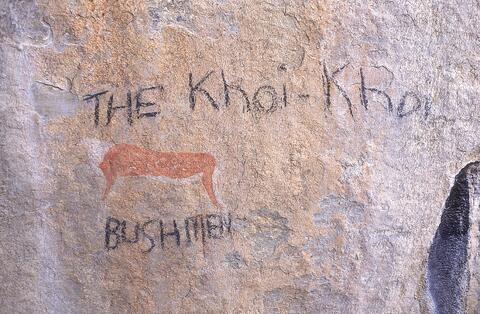 THE Khoi-Khoi
BUSHMEN